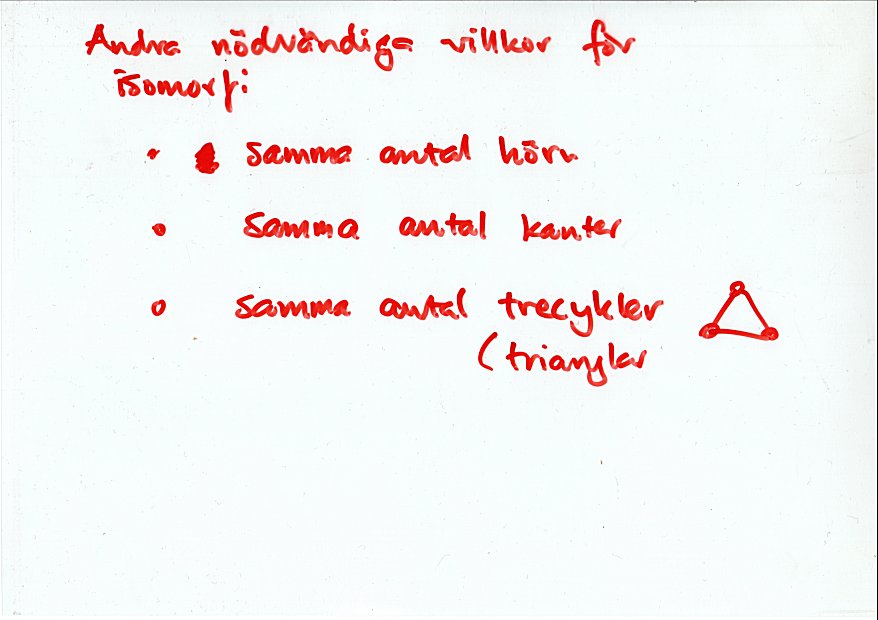 Andra nödvändiga villkor för
isomorfi:
• samma antal hörn
• samma antal kanter
• samma antal trecykler
(trianglar